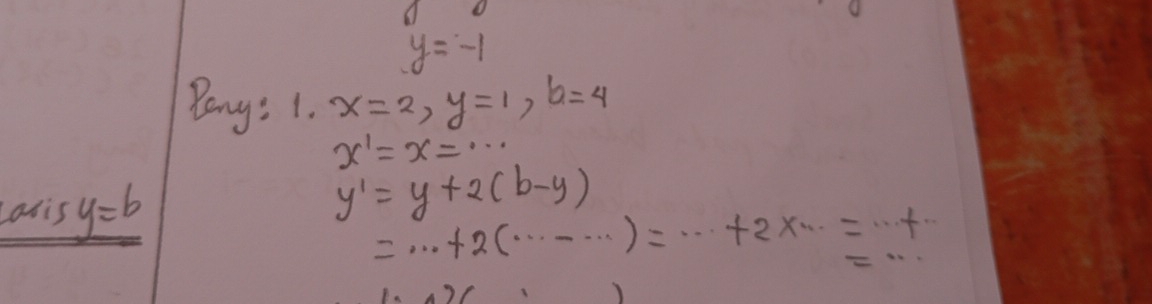 y = -1
Peny: 1. x = 2, y = 1, b = 4
x' = x = ...
y' = y + 2(b-y)
garis y = b
= ... + 2(... - ...) = ... + 2 x ... = ... + ...
= ...